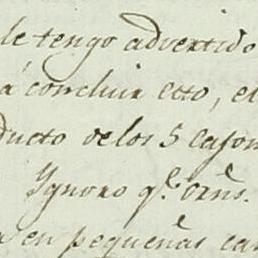 le tengo advertido
á concluir esto, el
ducto de los 5 cajon
Ygnoro q.e
en pequeñas can